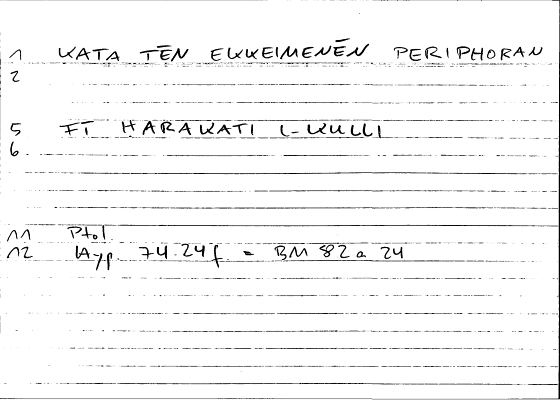 1 KATA TĒN EKKEIMENĒN PERIPHORAN
2
5 FĪ HARAKATI L-KULLI
6
11 Ptol
12 Hyp. 74.24f = BM 82a 24